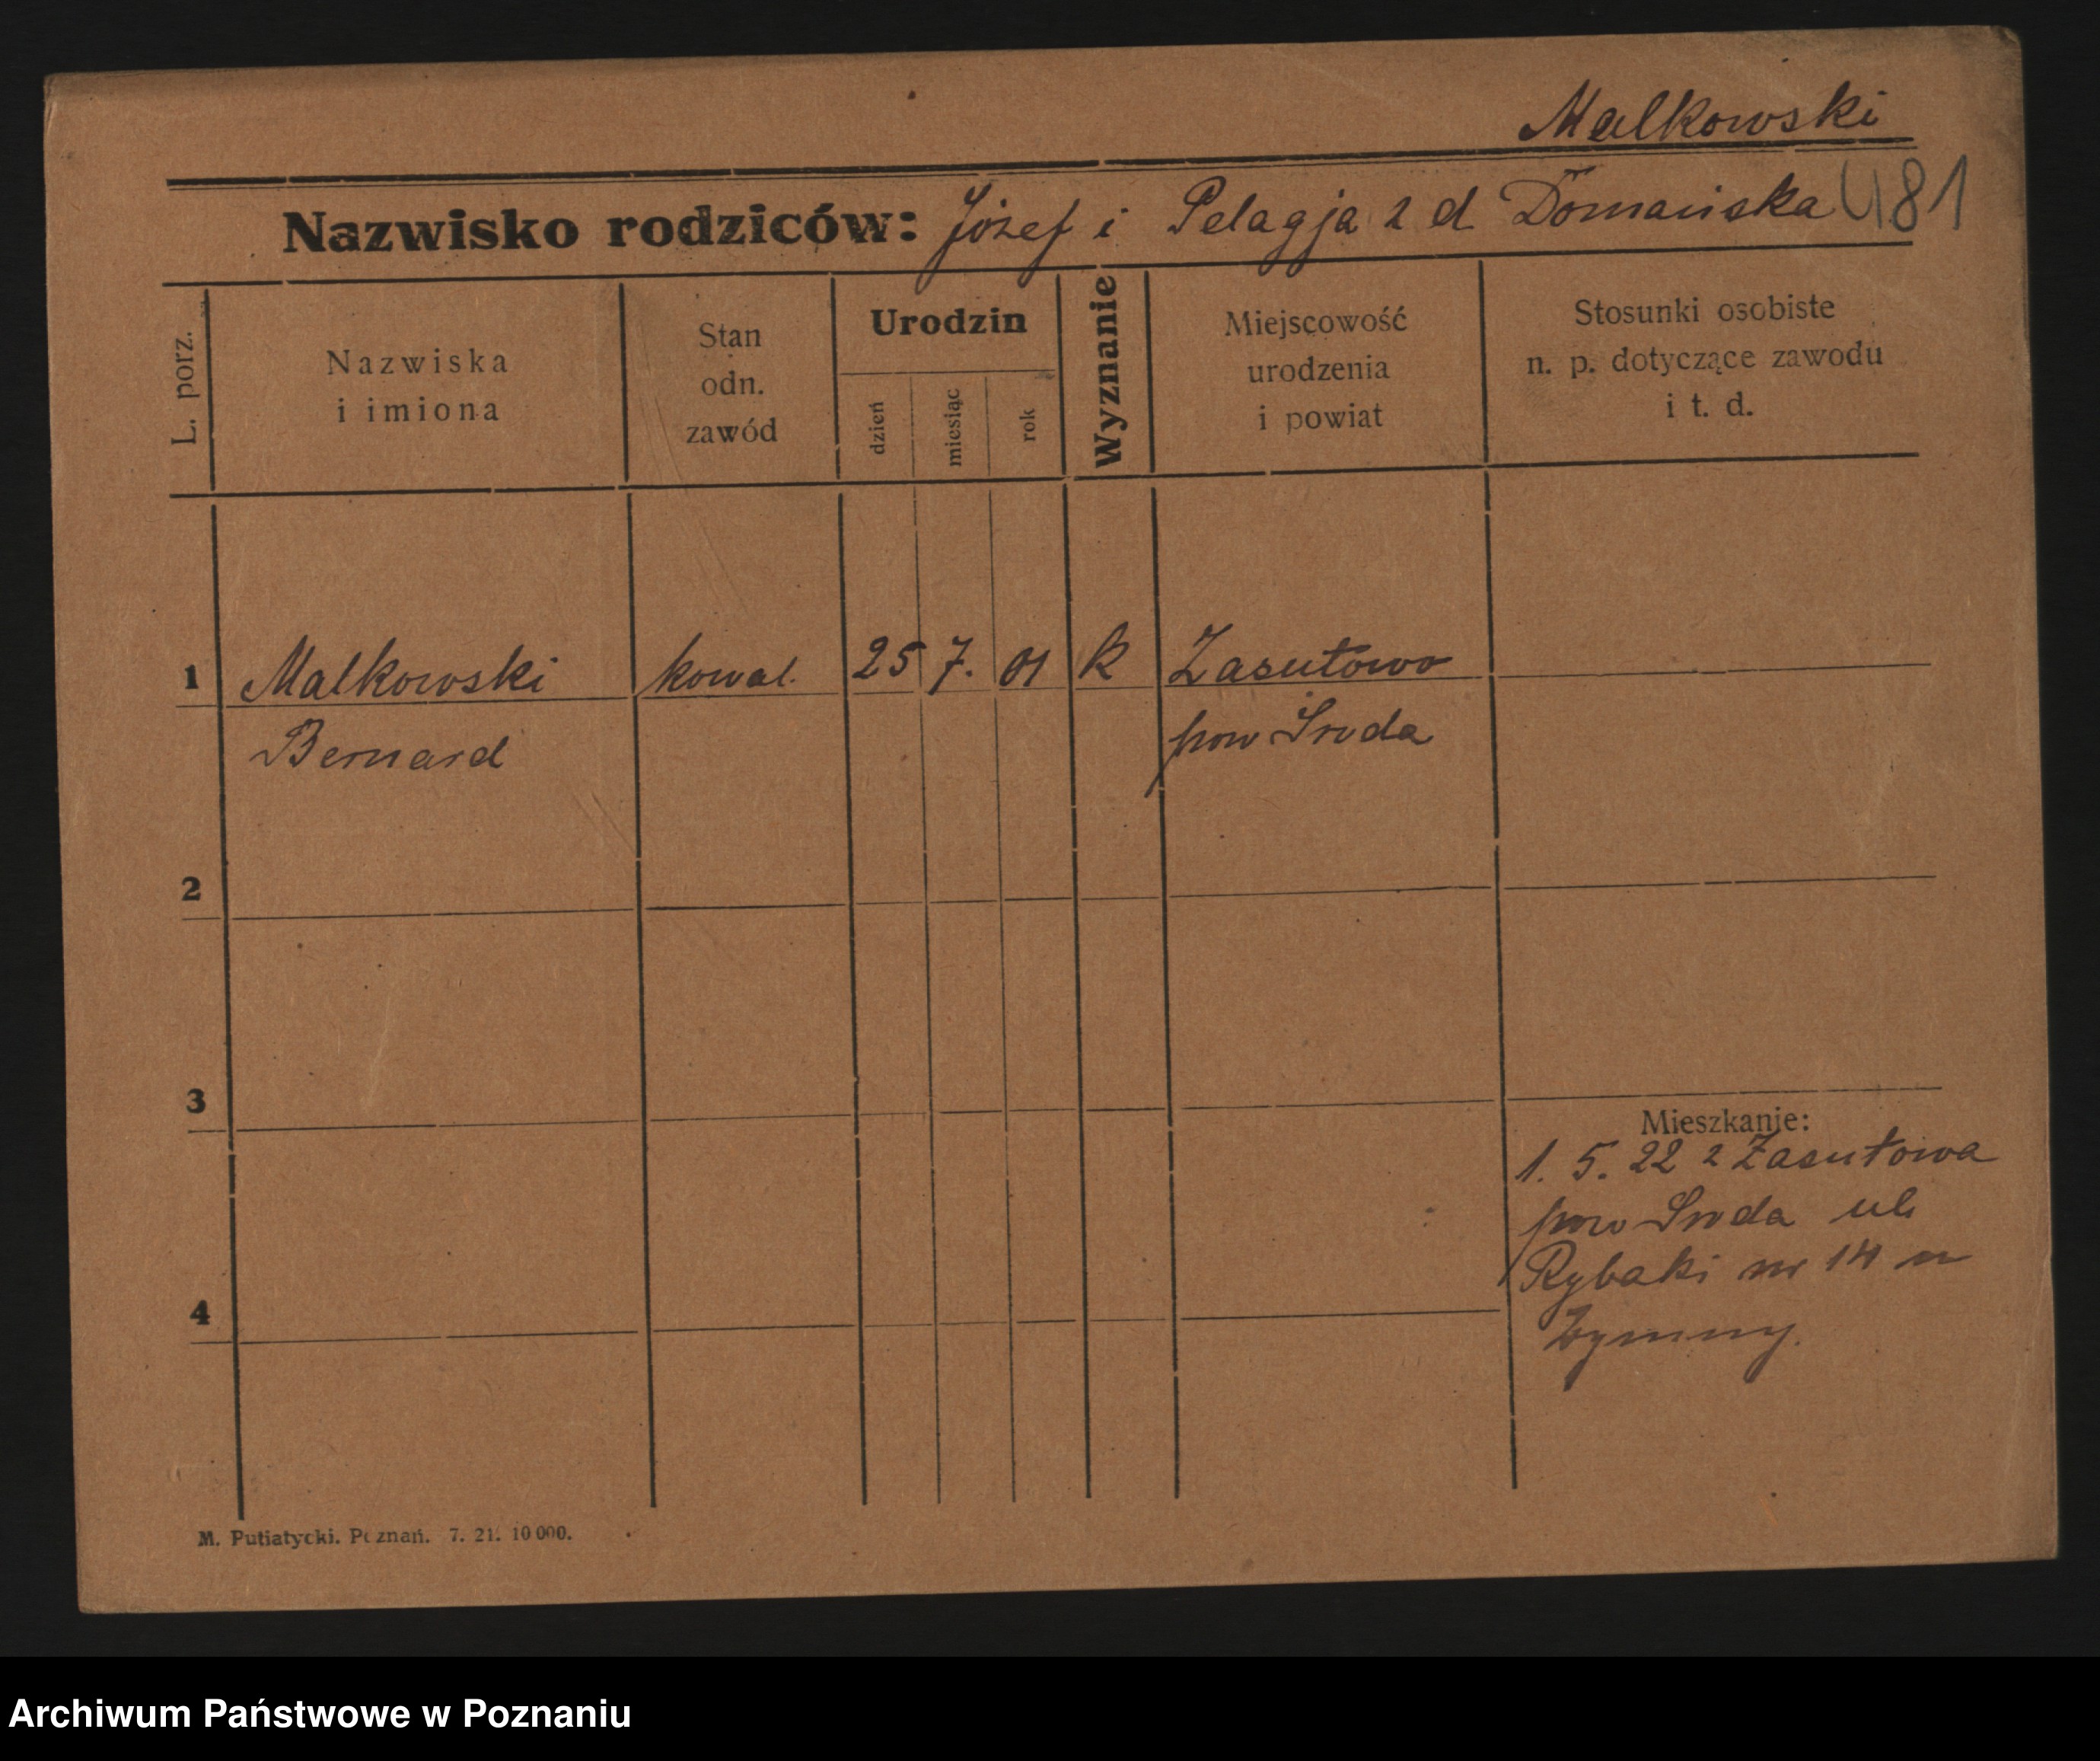 Malkowski
Nazwisko rodziców: Józef i Pelagja z d Domańska 481
L. porz.
Nazwiska
i imiona
Stan
odn.
zawód
Urodzin
dzień
miesiąc
rok
Wyznanie
Miejscowość
urodzenia
i powiat
Stosunki osobiste
n. p. dotyczące zawodu
i t. d.
1 Malkowski kowal. 25 7. 01 k Zasutowo
Bernard pow Środa
2
3
Mieszkanie:
1. 5. 22 z Zasutowa
pow Środa ul.
Rybaki nr 14 u
4
Zymny.
M. Putiatycki. Poznań. 7. 21. 10 000.
Archiwum Państwowe w Poznaniu